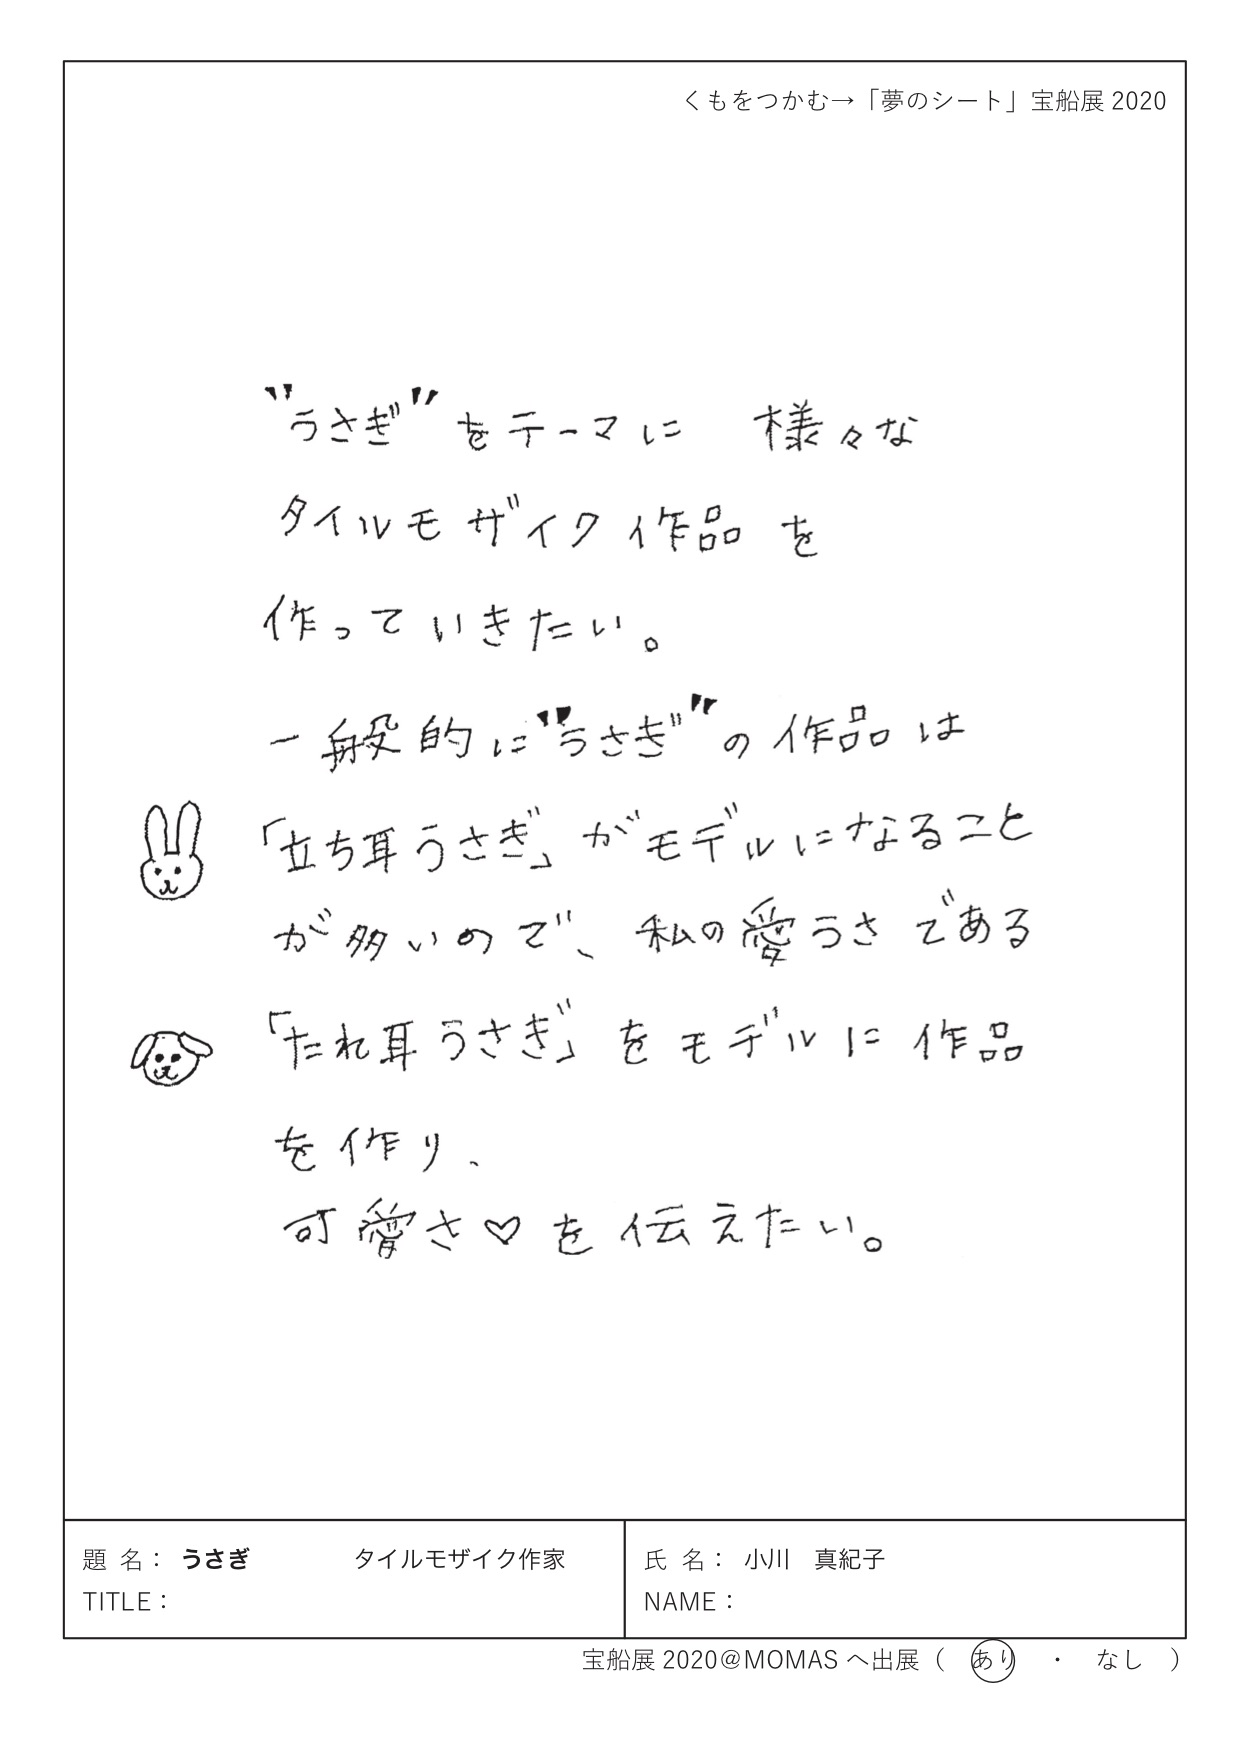 くもをつかむ→「夢のシート」宝船展 2020
"うさぎ"をテーマに 様々な
タイルモザイク作品を
作っていきたい。
一般的に"うさぎ"の作品は
「立ち耳うさぎ」がモデルになること
が多いので、私の愛うさである
「たれ耳うさぎ」をモデルに作品
を作り、
可愛さ♡を伝えたい。
題 名： うさぎ タイルモザイク作家
TITLE：
氏 名： 小川 真紀子
NAME：
宝船展 2020@MOMAS へ出展（ あり ・ なし ）